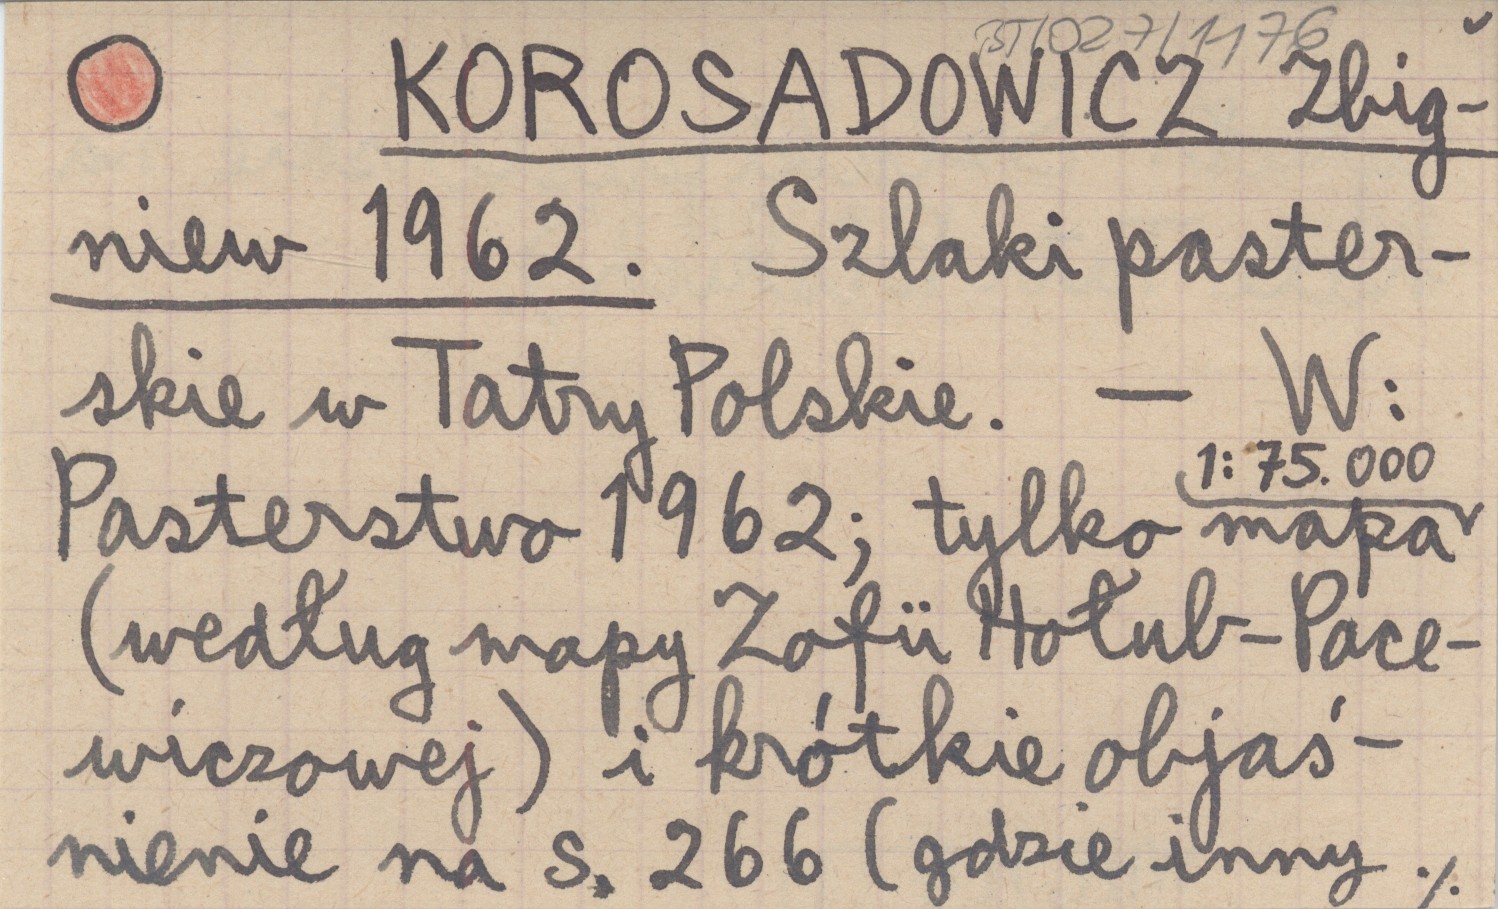 BT/027/1176
KOROSADOWICZ Zbig-
niew 1962. Szlaki paster-
skie w Tatry Polskie. — W:
1:75.000
Pasterstwo 1962; tylko mapa
(według mapy Zofii Hołub-Pace-
wiczowej) i krótkie objaś-
nienie na s. 266 (gdzie inny ./.